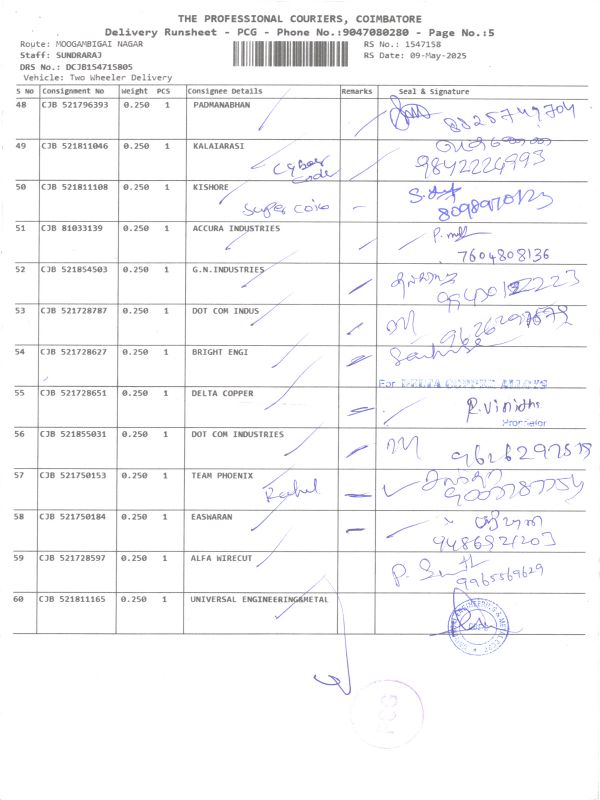 THE PROFESSIONAL COURIERS, COIMBATORE
Delivery Runsheet - PCG - Phone No.:9047080280 - Page No.:5
Route: MOOGAMBIGAI NAGAR RS No.: 1547158
Staff: SUNDRARAJ RS Date: 09-May-2025
DRS No.: DCJB154715805
Vehicle: Two Wheeler Delivery
S No Consignment No Weight PCS Consignee Details Remarks Seal & Signature
48 CJB 521796393 0.250 1 PADMANABHAN 8825749704
49 CJB 521811046 0.250 1 KALAIARASI
Cyber code 9842224993
50 CJB 521811108 0.250 1 KISHORE
Super coio 8098970123
51 CJB 81033139 0.250 1 ACCURA INDUSTRIES
7604808136
52 CJB 521854503 0.250 1 G.N.INDUSTRIES
53 CJB 521728787 0.250 1 DOT COM INDUS
54 CJB 521728627 0.250 1 BRIGHT ENGI
For DELTA COPPER ALLOYS
55 CJB 521728651 0.250 1 DELTA COPPER
R. Vinidha
Proprietor
56 CJB 521855031 0.250 1 DOT COM INDUSTRIES
9626297579
57 CJB 521750153 0.250 1 TEAM PHOENIX
Rahul
58 CJB 521750184 0.250 1 EASWARAN
9486921203
59 CJB 521728597 0.250 1 ALFA WIRECUT
9965569629
60 CJB 521811165 0.250 1 UNIVERSAL ENGINEERING&METAL
PCG